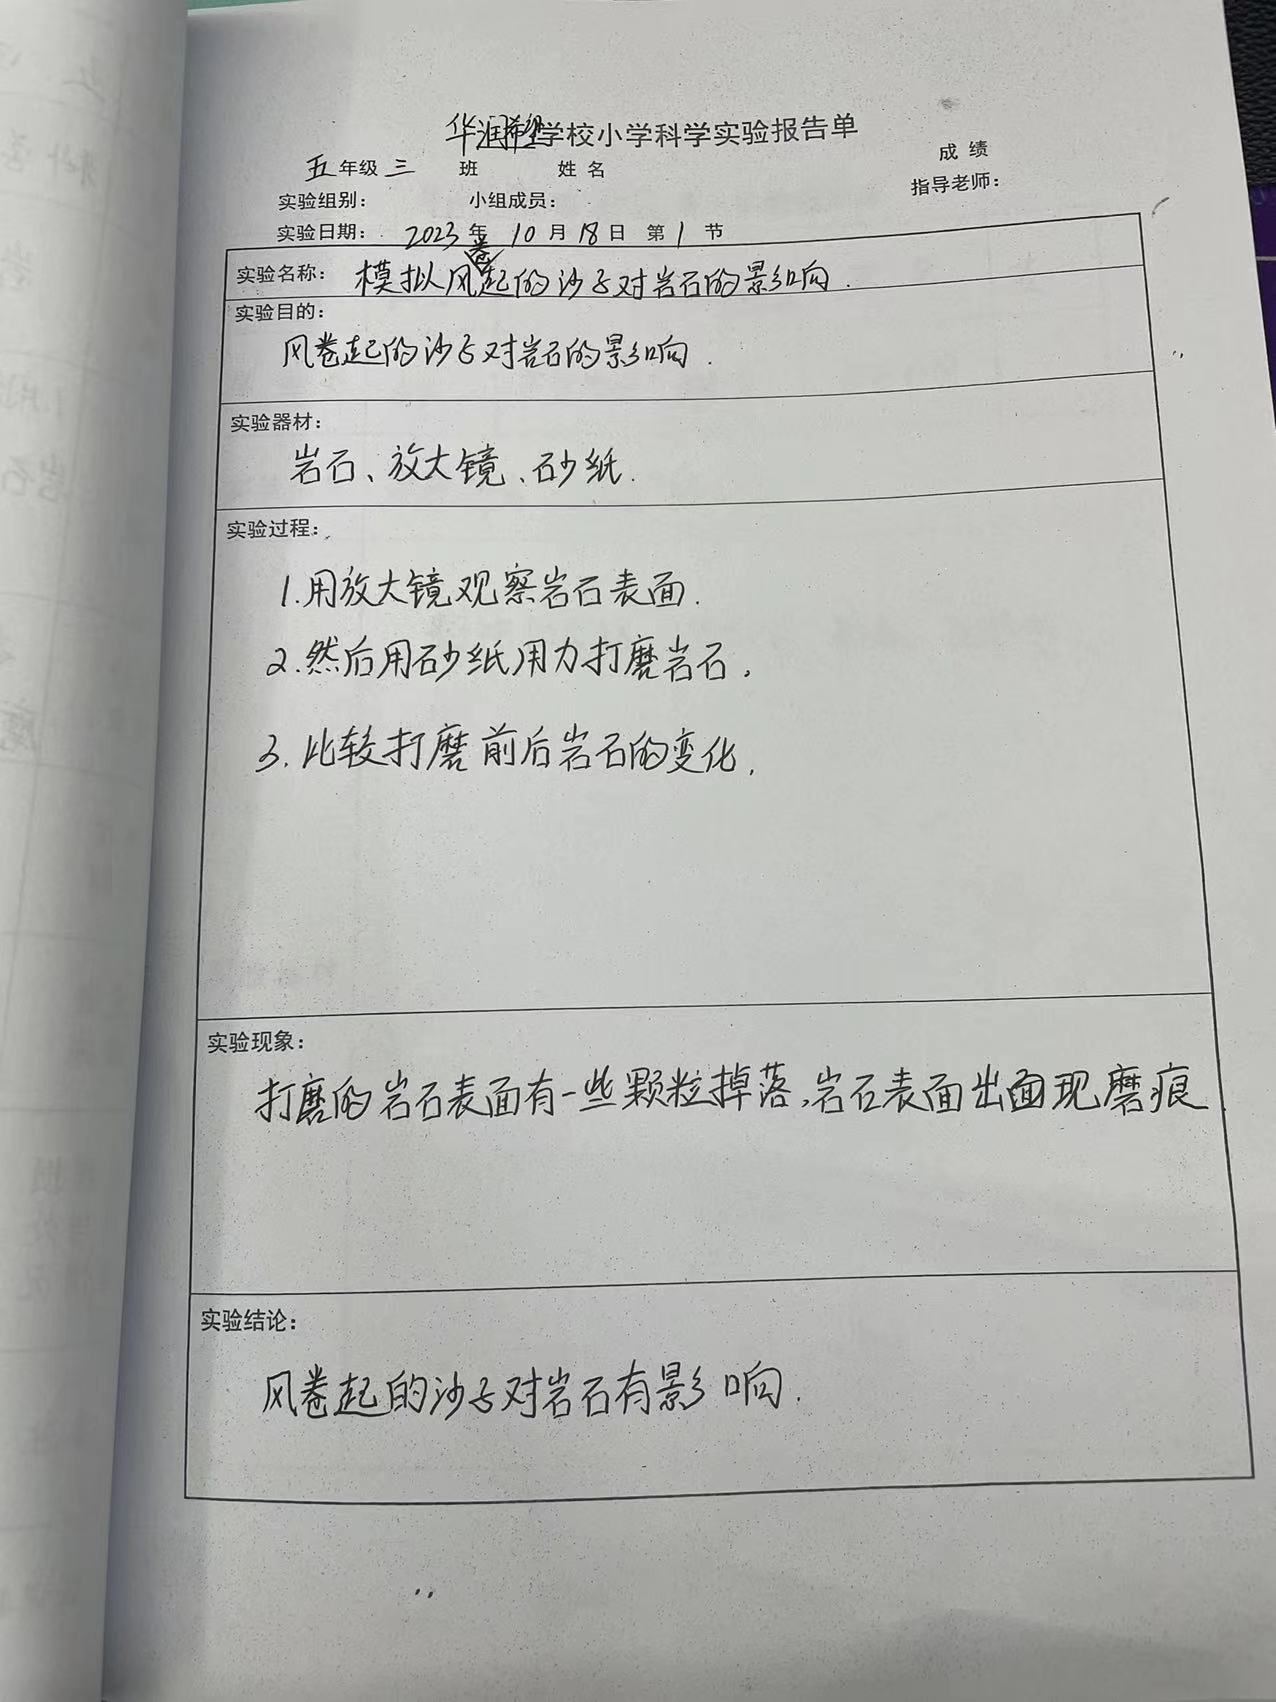 华润希望学校小学科学实验报告单
五年级三 班 姓名 成绩
实验组别： 小组成员： 指导老师：
实验日期： 2023年 10月18日 第1节
实验名称： 模拟风卷起的沙子对岩石的影响.
实验目的：
风卷起的沙子对岩石的影响.
实验器材：
岩石、放大镜、砂纸.
实验过程：
1.用放大镜观察岩石表面.
2.然后用砂纸用力打磨岩石.
3.比较打磨前后岩石的变化.
实验现象：
打磨的岩石表面有一些颗粒掉落,岩石表面出面现磨痕.
实验结论：
风卷起的沙子对岩石有影响.